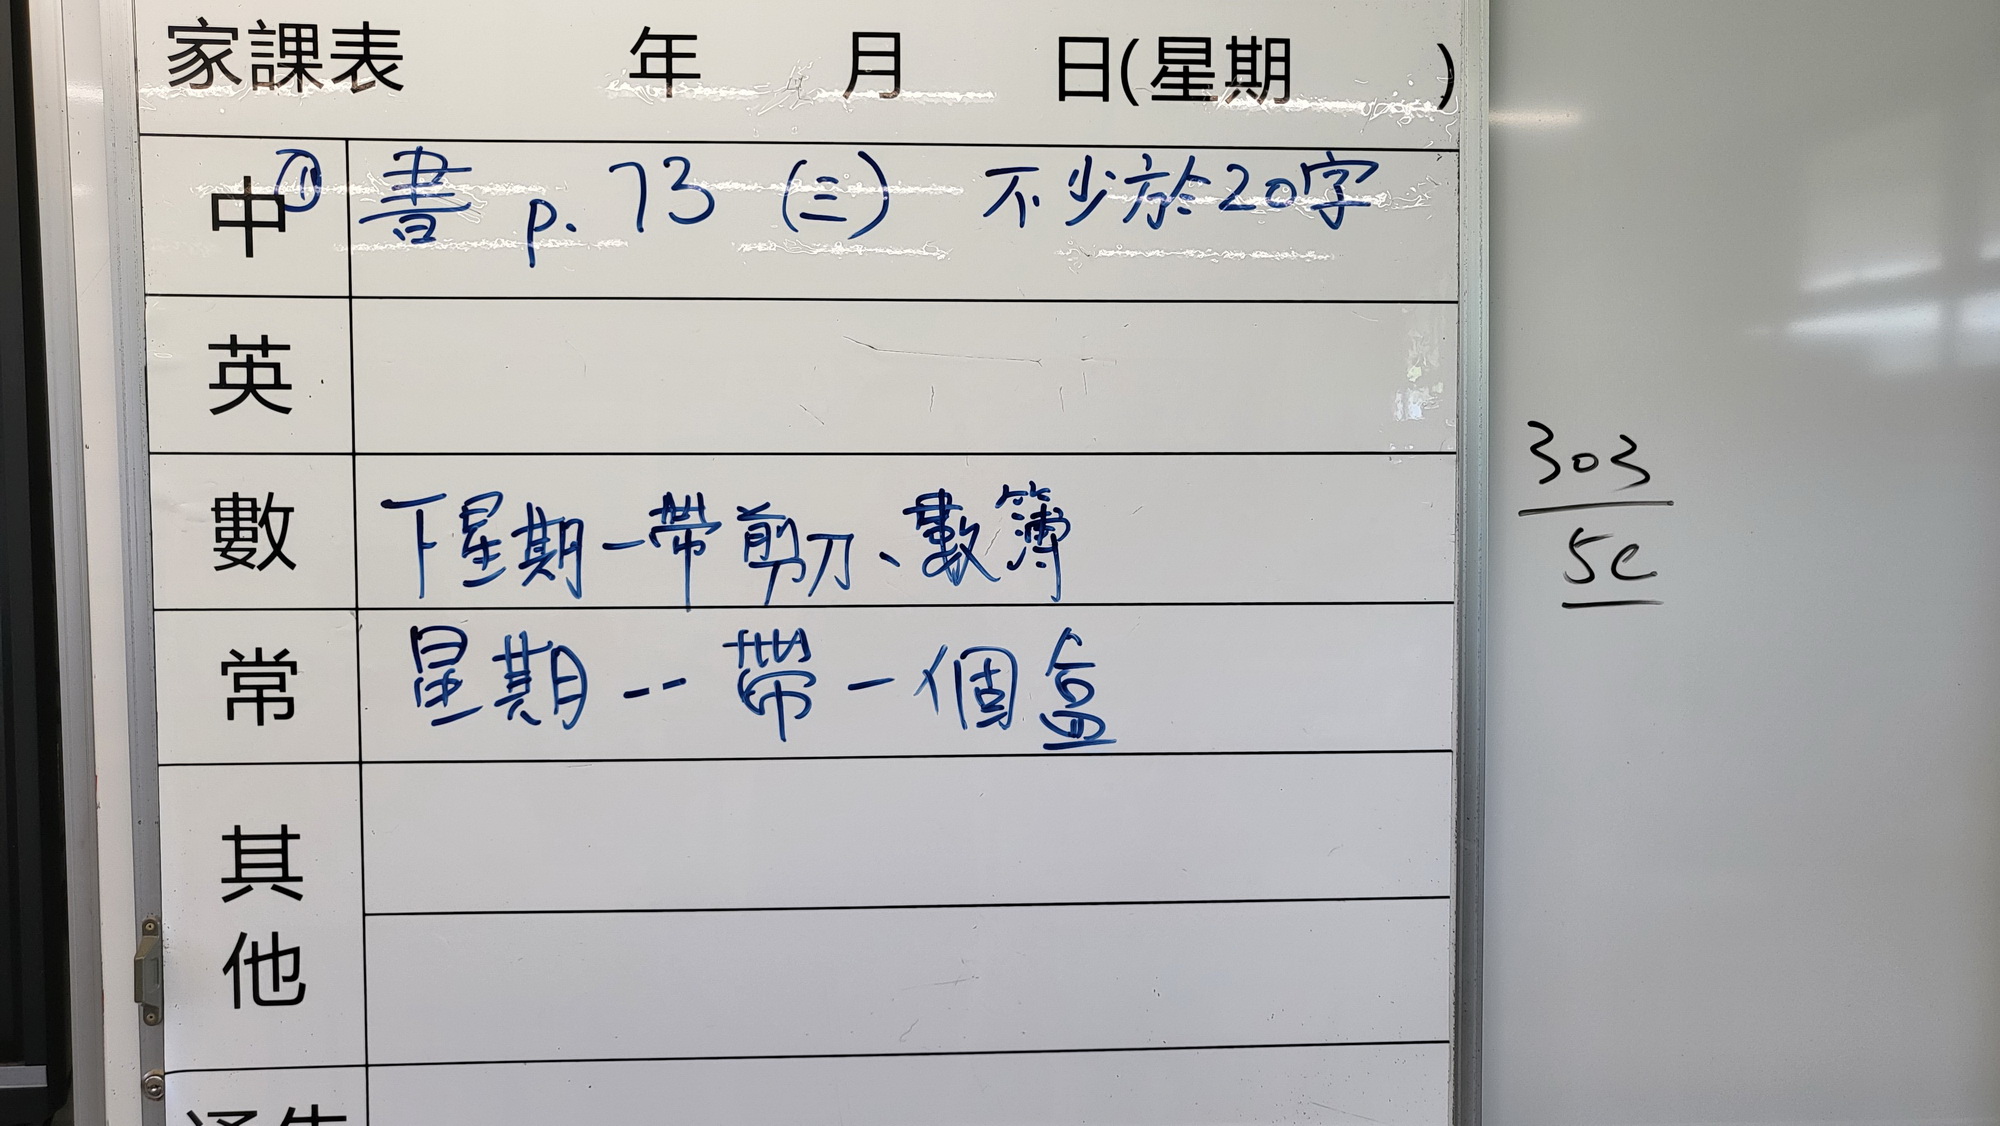 家課表 年 月 日(星期 )
中 ① 書 p. 73 (三) 不少於20字
英
數 下星期一帶剪刀、數簿
常 星期一帶一個盒
其他
303
5e